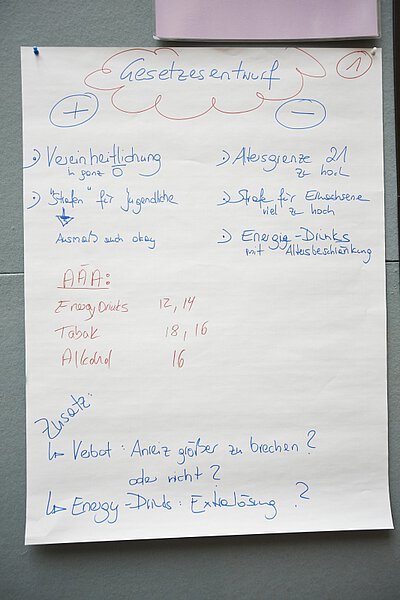 Gesetzesentwurf
1
+
-
Vereinheitlichung
in ganz Ö
"Strafen" für Jugendliche
Ausmaß auch okay
Altersgrenze 21
zu hoch
Strafe für Erwachsene
viel zu hoch
Energie-Drinks
mit Altersbeschränkung
AÄA:
Energy Drinks 12, 14
Tabak 18, 16
Alkohol 16
Zusatz:
↳ Verbot: Anreiz größer zu brechen?
oder nicht?
↳ Energy-Drinks: Extralösung?